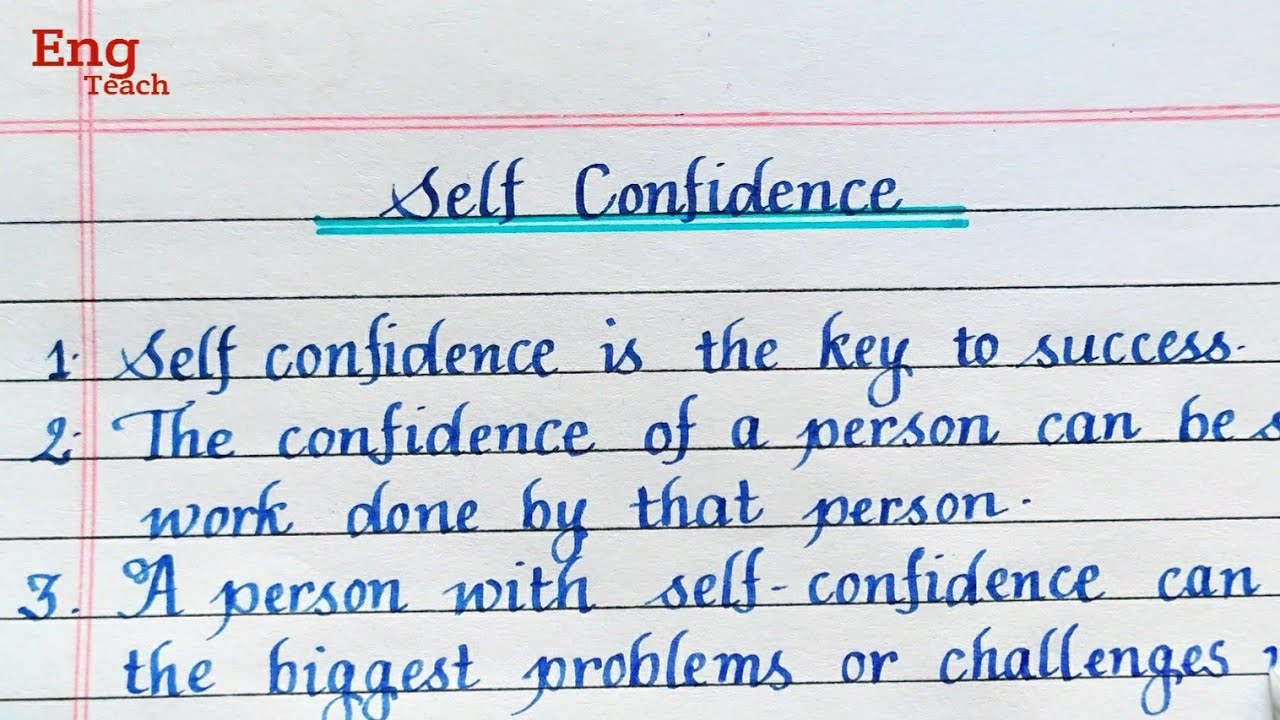 Eng
Teach
Self Confidence
1. Self confidence is the key to success.
2. The confidence of a person can be
work done by that person.
3. A person with self-confidence can
the biggest problems or challenges